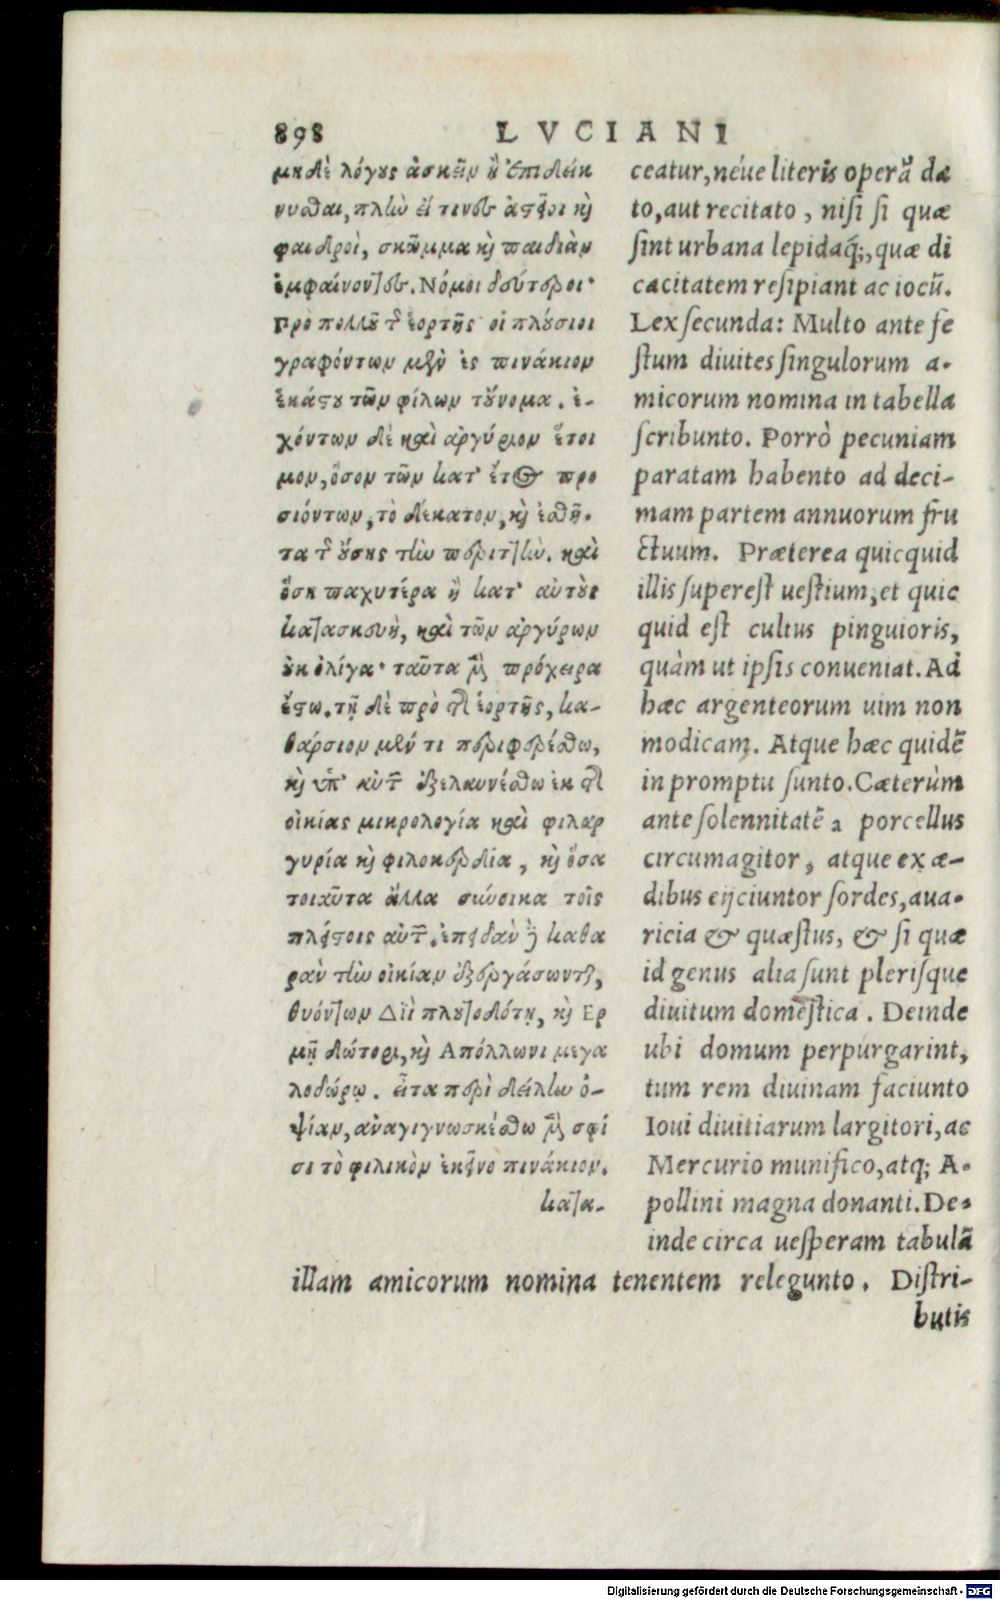 898 LVCIANI
μηδὲ λόγους ἀσκεῖν ἢ ἐπιδείκ
νυσθαι, πλὴν εἴ τινες ἀστεῖοι καὶ
φαιδροὶ, σκῶμμα καὶ παιδιὰν
ἐμφαίνοντες. Νόμοι δεύτεροι·
Προ πολλοῦ τῆς ἑορτῆς οἱ πλούσιοι
γραφόντων μὲν ἐς πινάκιον
ἑκάστου τῶν φίλων τοὔνομα. ἐ-
χόντων δὲ καὶ ἀργύριον ἕτοι
μον, ὅσον τῶν κατ' ἔτος προ
σιόντων, τὸ δέκατον, καὶ ἐσθῆ-
τα τῆς οὔσης τὴν περιττὴν. καὶ
ὅση παχυτέρα ἢ κατ' αὐτοὺς
κατασκευὴ, καὶ τῶν ἀργύρων
οὐκ ὀλίγα· ταῦτα μὲν πρόχειρα
ἔστω. τῇ δὲ πρὸ τῆς ἑορτῆς, κα-
θάρσιον μὲν τι περιφερέσθω,
καὶ ὑπ' αὐτῶν ἐξελαυνέσθω ἐκ τῆς
οἰκίας μικρολογία καὶ φιλαρ
γυρία καὶ φιλοκερδία, καὶ ὅσα
τοιαῦτα ἄλλα σύνοικα τοῖς
πλείστοις αὐτῶν. ἐπειδὰν δὲ καθα
ρὰν τὴν οἰκίαν ἐξεργάσωνται,
θυόντων Διῒ πλουτοδότῃ, καὶ Ερ
μῇ δώτορι, καὶ Απόλλωνι μεγα
λοδώρῳ. εἶτα περὶ δείλην ὀ-
ψίαν, ἀναγιγνωσκέσθω μὲν σφί
σι τὸ φιλικὸν ἐκεῖνο πινάκιον.
κατα-
ceatur, néue literis operã da
to, aut recitato, nisi si quæ
sint urbana lepidaq́;, quæ di
cacitatem resipiant ac iocũ.
Lex secunda: Multo ante fe
stum diuites singulorum a-
micorum nomina in tabella
scribunto. Porrò pecuniam
paratam habento ad deci-
mam partem annuorum fru
ctuum. Præterea quicquid
illis superest uestium, et quic
quid est cultus pinguioris,
quàm ut ipsis conueniat. Ad
hæc argenteorum uim non
modicam. Atque hæc quidẽ
in promptu sunto. Cæterùm
ante solennitatẽ porcellus
circumagitor, atque ex æ-
dibus eijciuntor sordes, aua-
ricia & quæstus, & si quæ
id genus alia sunt plerisque
diuitum domestica. Deinde
ubi domum perpurgarint,
tum rem diuinam faciunto
Ioui diuitiarum largitori, ac
Mercurio munifico, atq; A-
pollini magna donanti. De-
inde circa uesperam tabulã
illam amicorum nomina tenentem relegunto. Distri-
butis
Digitalisierung gefördert durch die Deutsche Forschungsgemeinschaft - DFG